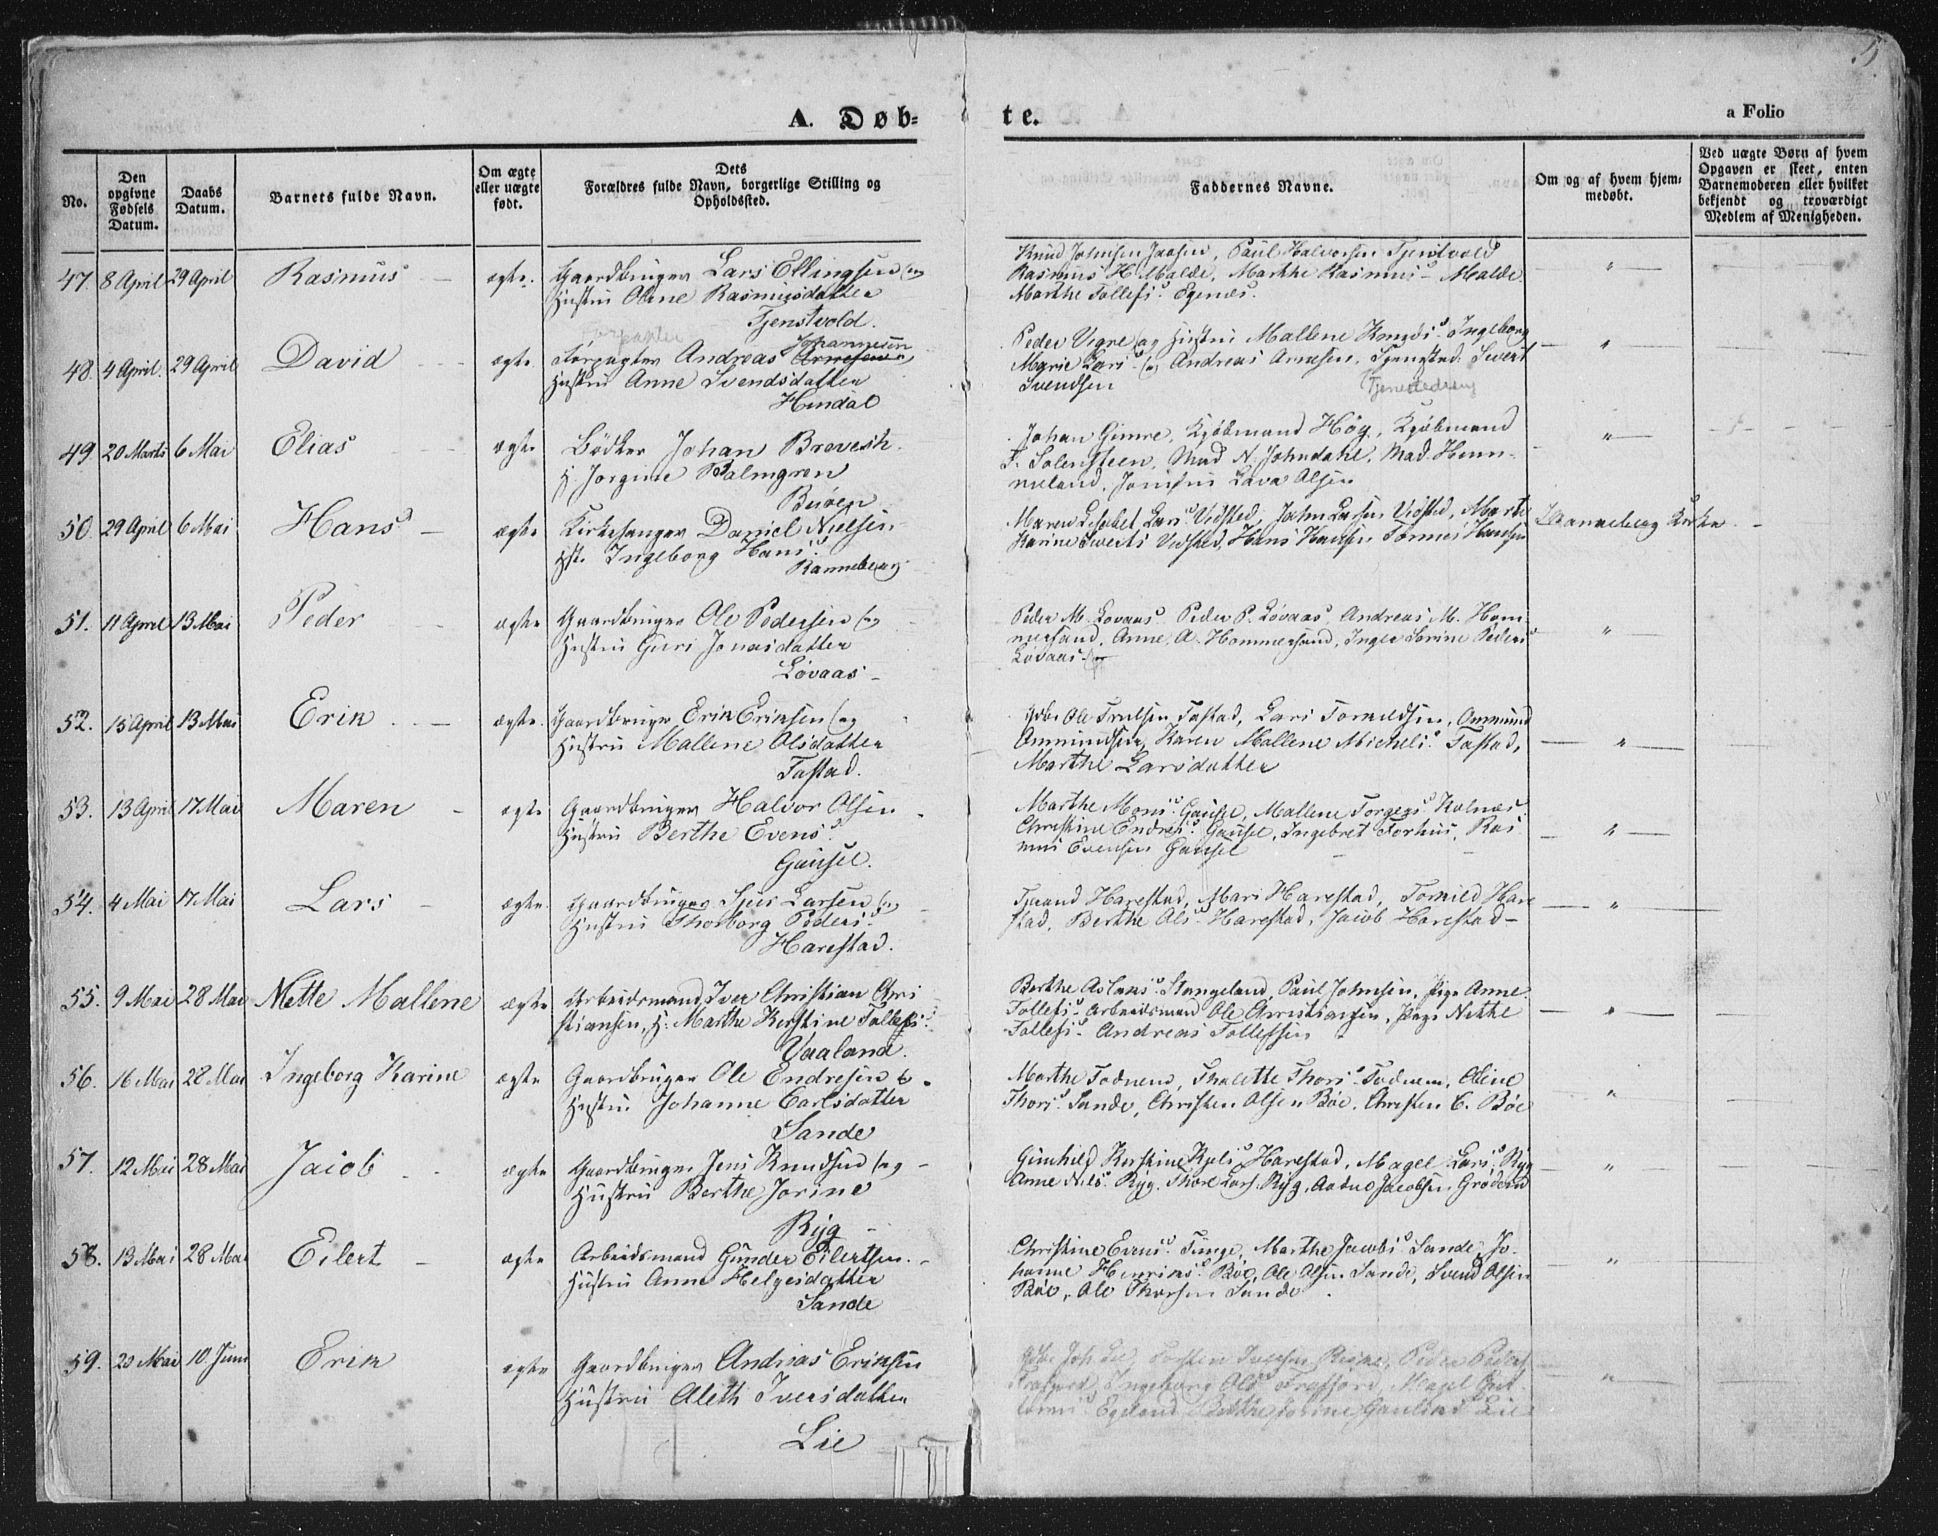 5.
A. Døb=
te.
a Folio
No.
Den opgivne Fødsels Datum.
Daabs Datum.
Barnets fulde Navn.
Om ægte eller uægte født.
Dets Forældres fulde Navn, borgerlige Stilling og Opholdssted.
Faddernes Navne.
Om og af hvem hjem= medøbt.
Ved uægte Børn af hvem Opgaven er skeet, enten Barnemoderen eller hvilket bekjendt og troværdigt Medlem af Menigheden.
47. 8 April 29 April Rasmus — ægte. Gaardbruger Lars Ellingsen og
Hustru Oline Rasmusdatter
Tjenstvold.
Knud Johnsen Jaasen, Paul Halvorsen Tjentvold
Rasmus H. Malde, Marthe Rasmus Malde
Marthe Tollefs. Egenæs.
48. 4 April. 29 April David ægte Forpagter Andreas Johannesen
Hustru Anne Svendsdatter
Hindal
Peder Vigre og Hustru Mallene Knuds. Ingeborg
Marie Lars. og Andreas Arnesen, Sivert
Svendsen
49 20 Marts 6 Mai Elias ægte Bødker Johan Brevesh.
H. Jorgine Palmgren
Buøen
Johan Gimre, Kjøbmand Høg, Kjøbmand
F. Solensteen, Mad N. Johndahl, Mad. Hem-
meland, Lava Olsen
50. 29 April 6 Mai Hans — ægte Kirkesanger Daniel Nielsen
Hst. Ingeborg Hans.
Ranneberg
Maren Lisabet Lars. Vidsted, John Larsen Vidsted, Marte
Karine Siverts Vidsted, Hans Hansen Tønnes Hansen
Ranneberg Kirke
51. 11 April 13 Mai Peder ægte Gaardbruger Ole Pedersen og
Hustru Guri Jonasdatter
Løvaas
Peder M. Lovaas Peder P. Løvaas Andreas M. Hom-
mersand, Anne A. Hommersand, Inger Serine Peders
Løvaas
52. 15 April 13 Mai Erik ægte. Gaardbruger Erik Eriksen og
Hustru Mallene Olsdatter
Tastad.
Gdbr Ole Trulsen Tastad, Lars Tormodsen, Ommund
Ommundsen, Karen Mallene Michels. Tastad,
Marthe Larsdatter
53. 13 April 17 Mai Maren ægte Gaardbruger Halvor Olsen
Hustru Berthe Evens.
Gausel.
Marthe Mons. Gausel, Mallene Torgers. Holnæs.
Christine Endres. Gausel, Ingebret Forhus, Ras
mus Evensen Gausel
54. 4 Mai 17 Mai Lars ægte Gaardbruger Sjur Larsen og
Hustru Thorborg Peders.
Harestad.
Traand Harestad, Mari Harestad, Tormild Hare
stad, Berthe Ols. Harestad, Jacob Harestad
55. 9 Mai 28 Mai Nette Mallene ægte Arbeidsmand Iver Christian Chri
stiansen, H. Marthe Kerstine Tollefs.
Vaaland.
Berthe Aslaks. Stangeland, Paul Johnsen, Pige Anne
Tollefs. Arbeidsmand Ole Christiansen, Pige Nette
Tollefs. Andreas Tollefsen
56. 16 Mai 28 Mai Ingeborg Karine ægte Gaardbruger Ole Endresen og
Hustru Johanne Carlsdatter
Sande
Marthe Todnem, Thalette Thors. Todnem, Oline
Thors. Sande, Christen Olsen Bøe, Christen C. Bøe
57. 12 Mai 28 Mai Jacob ægte Gaardbruger Jens Knudsen og
Hustru Berthe Jorine
Ryg
Gunhild Kerstine Kjels. Harestad, Magel Lars. Ryg
Anne Nils. Ryg. Thore Lars. Ryg, Aadne Jacobsen Grødem
58. 13 Mai 28 Mai Eilert — ægte Arbeidsmand Gunder Eilertsen.
Hustru Anne Helgesdatter
Sande
Christine Evens. Tunge, Marthe Jacobs. Sande, Jo-
hanne Henriks. Bøe, Ole Olsen Sande, Svend Olsen
Bøe, Ole Thorsen Sande
59. 20 Mai 10 Juni Erik ægte Gaardbruger Andreas Eriksen
Hustru Aleth Iversdatter
Lie
Gdbr Joh Lie, Torsten Peder Peders
Frafjord, Ingeborg Ols. Frafjord, Magel
Egeland, Lie